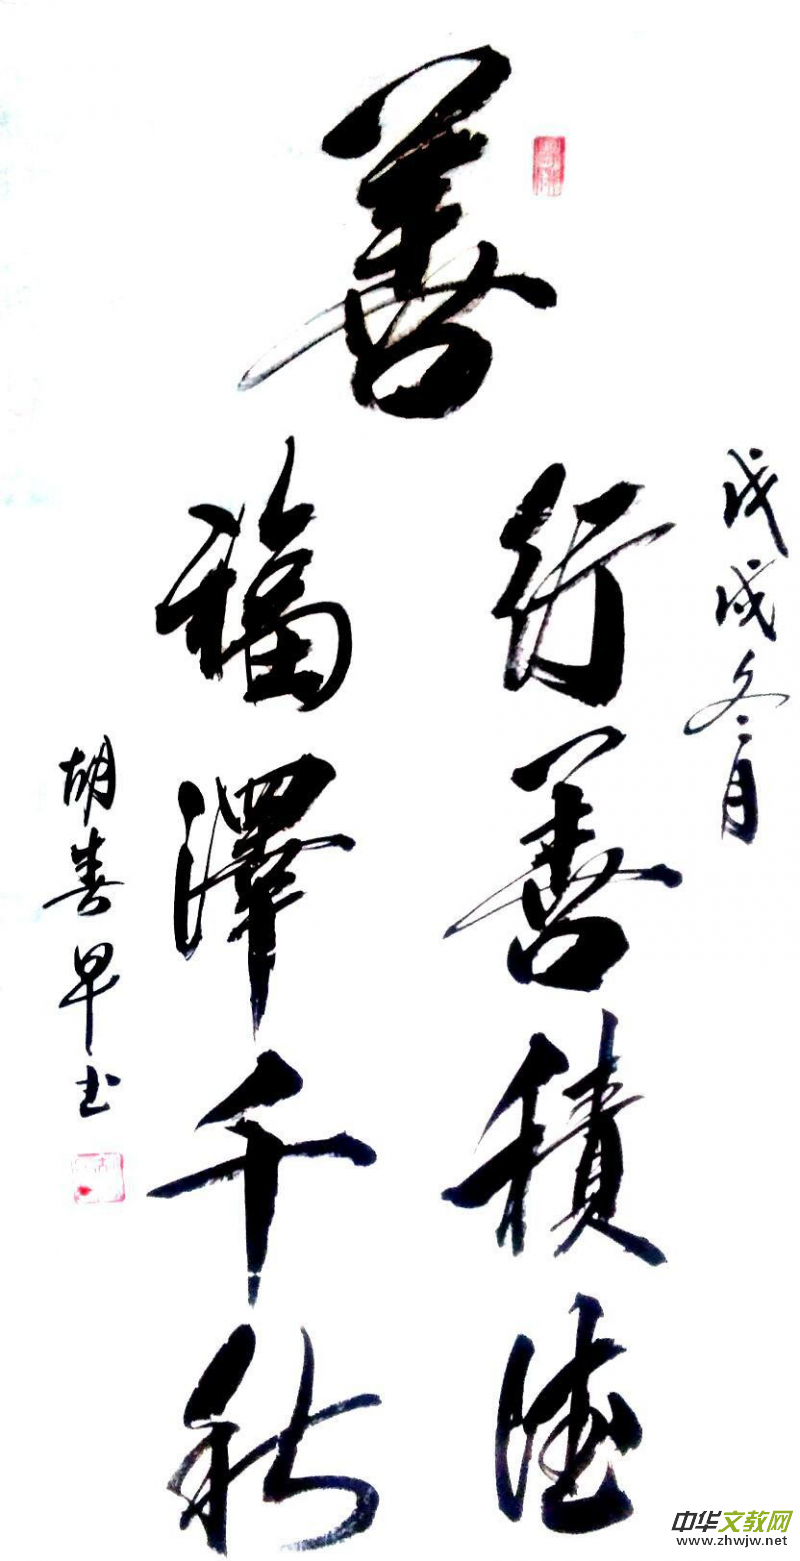 善
戊戌冬月
行善積德
福澤千秋
胡春早书
中华文教网
www.zhwjw.net